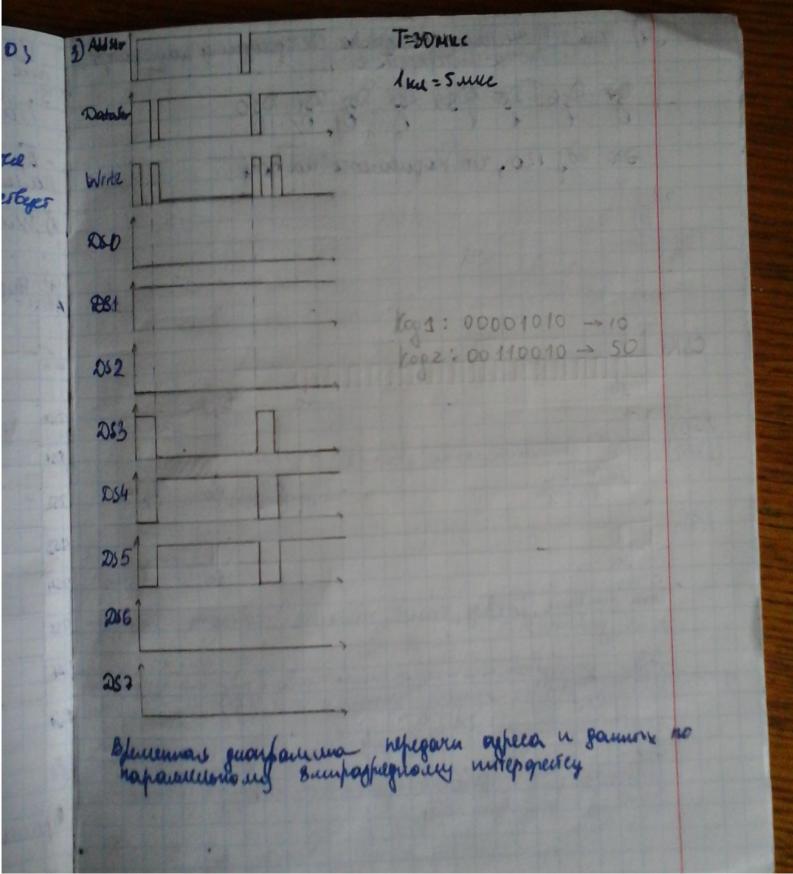 3) AddStr
T=30мкс
1кл=5мкс
DataStr
Write
DS0
DS1
Код1: 00001010 → 10
Код2: 00110010 → 50
DS2
DS3
DS4
DS5
DS6
DS7
Временная диаграмма передачи адреса и данных по
параллельному 8миразрядному интерфейсу